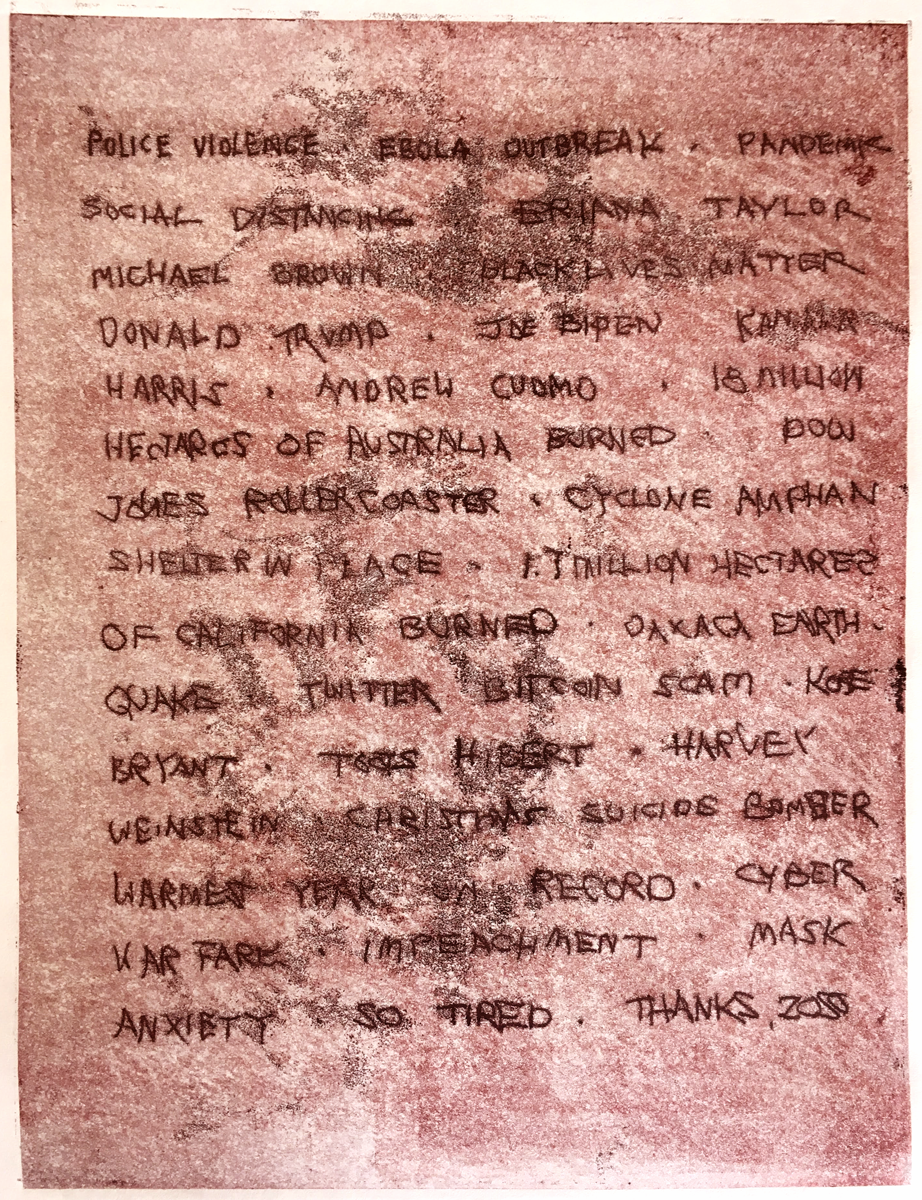 POLICE VIOLENCE · EBOLA OUTBREAK · PANDEMIC
SOCIAL DISTANCING BRIANA TAYLOR
MICHAEL BROWN · BLACK LIVES MATTER
DONALD TRUMP · JOE BIDEN KAMALA
HARRIS · ANDREW CUOMO · 18 MILLION
HECTARES OF AUSTRALIA BURNED DOW
JONES ROLLERCOASTER · CYCLONE AMPHAN
SHELTER IN PLACE · 1.7 MILLION HECTARES
OF CALIFORNIA BURNED · OAXACA EARTH·
QUAKE TWITTER BITCOIN SCAM · KOBE
BRYANT · TOOTS HIBERT · HARVEY
WEINSTEIN · CHRISTMAS SUICIDE BOMBER
WARMEST YEAR ON RECORD · CYBER
WARFARE · IMPEACHMENT · MASK
ANXIETY SO TIRED · THANKS,